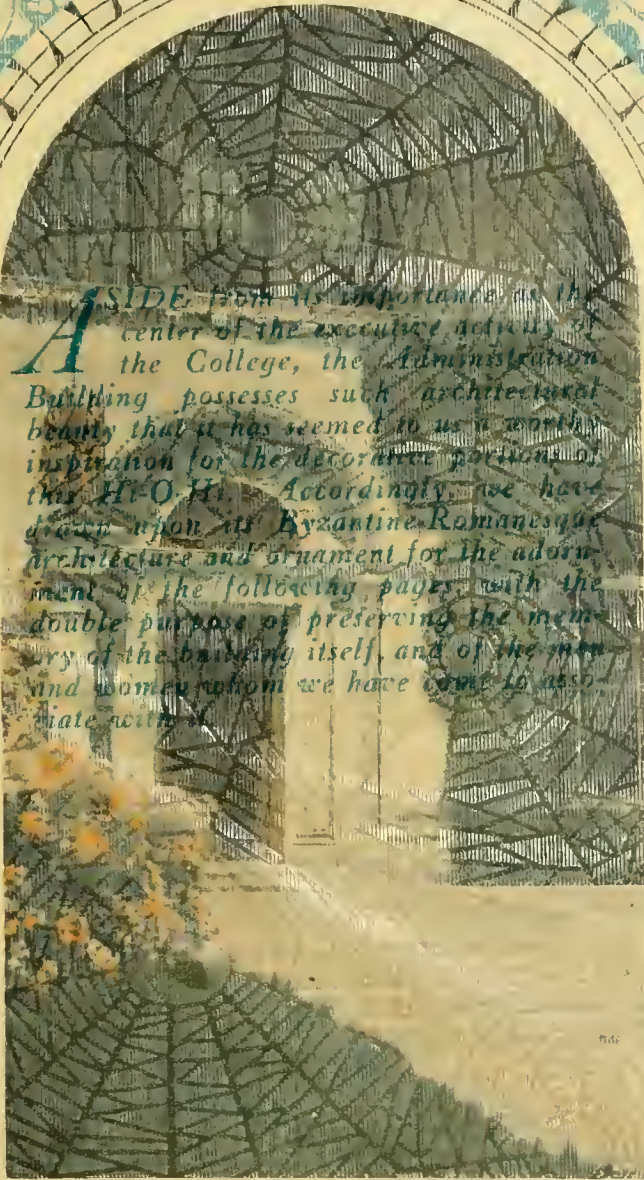 ASIDE from its importance as the
center of the executive activity of
the College, the Administration
Building possesses such architectural
beauty that it has seemed to us a worthy
inspiration for the decorative portions of
this Hi-O-Hi. Accordingly, we have
drawn upon its Byzantine-Romanesque
architecture and ornament for the adorn-
ment of the following pages with the
double purpose of preserving the mem-
ory of the building itself, and of the men
and women whom we have come to asso-
ciate with it.